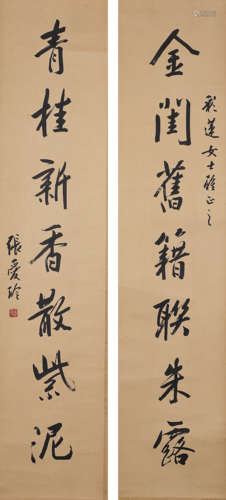 彩蓮女士雅正之
金閨舊籍聯朱露
青桂新香散紫泥
張愛玲